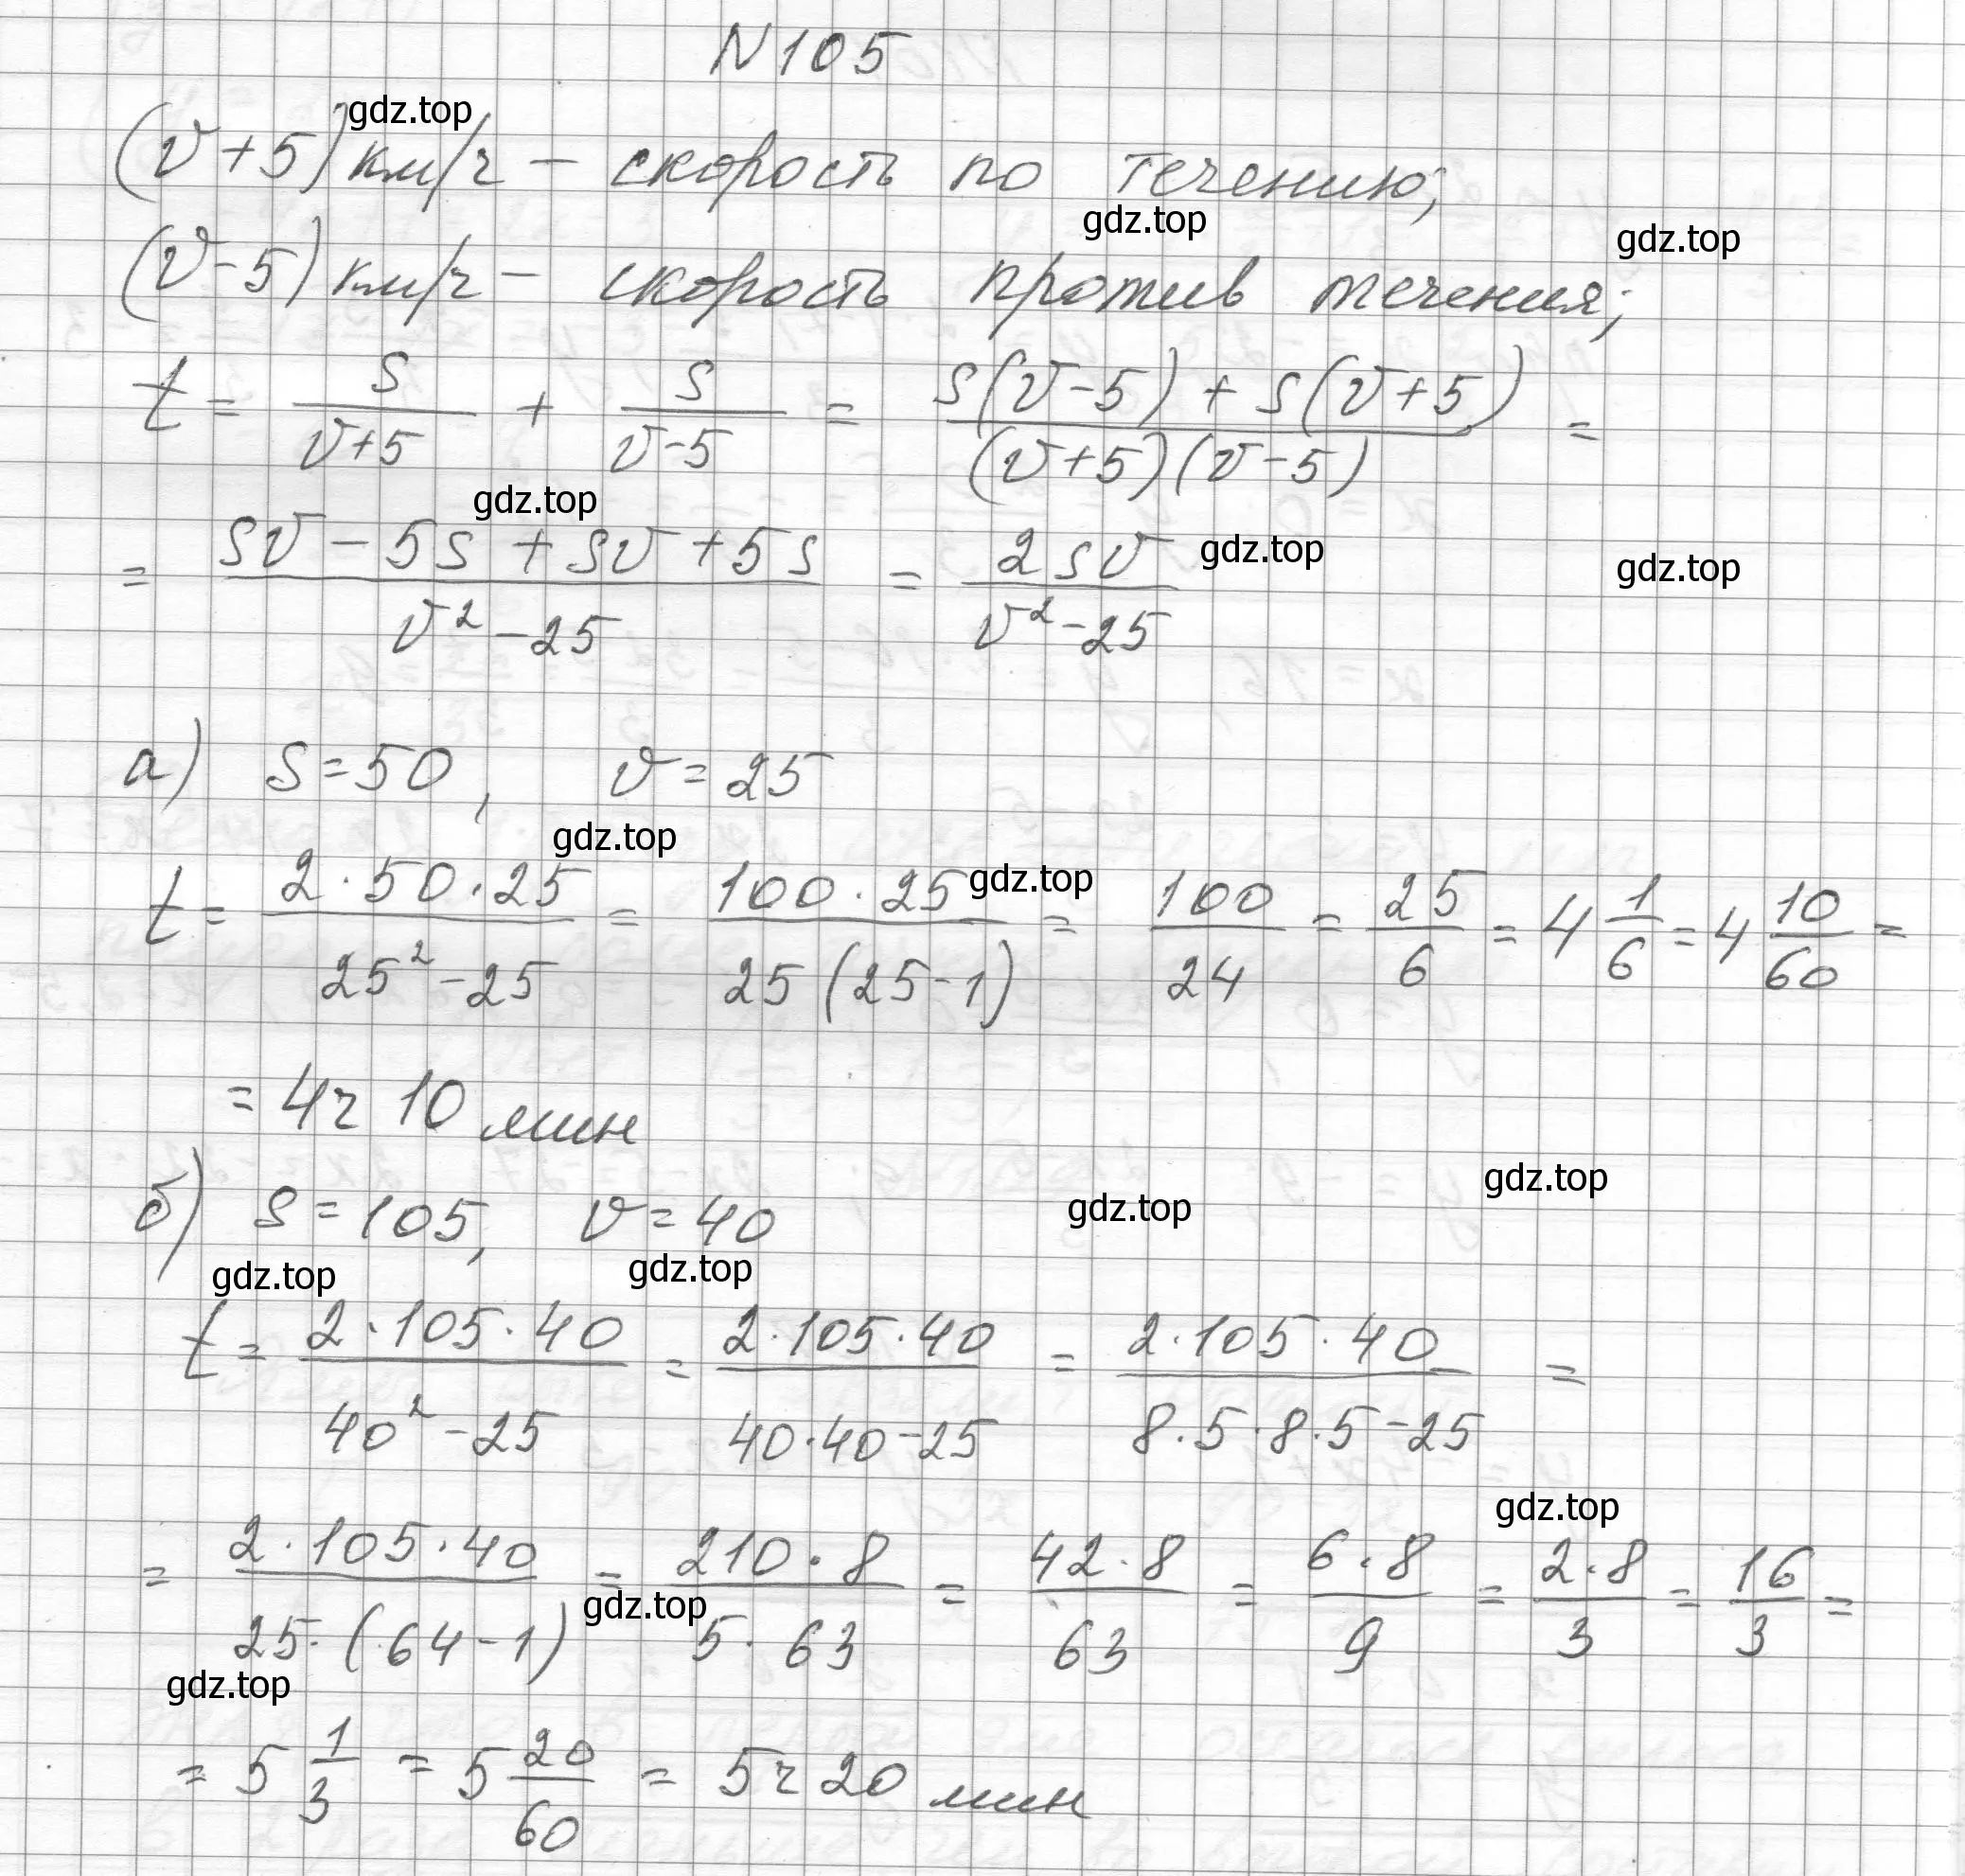 N105
gdz.top
(v+5) км/ч – скорость по течению;
gdz.top
gdz.top
(v-5) км/ч – скорость против течения;
t = s/(v+5) + s/(v-5) = (s(v-5) + s(v+5))/((v+5)(v-5)) =
gdz.top
= (sv - 5s + sv + 5s)/(v² - 25) = 2sv/(v² - 25)
gdz.top
gdz.top
а) s = 50, v = 25
gdz.top
t = (2·50·25)/(25² - 25) = (100·25)/(25(25-1)) = 100/24 = 25/6 = 4 1/6 = 4 10/60 =
gdz.top
= 4ч 10 мин
б) s = 105, v = 40
gdz.top
gdz.top
gdz.top
gdz.top
t = (2·105·40)/(40² - 25) = (2·105·40)/(40·40 - 25) = (2·105·40)/(8·5·8·5 - 25) =
gdz.top
= (2·105·40)/(25·(64-1)) = (210·8)/(5·63) = (42·8)/63 = (6·8)/9 = (2·8)/3 = 16/3 =
gdz.top
gdz.top
= 5 1/3 = 5 20/60 = 5ч 20 мин